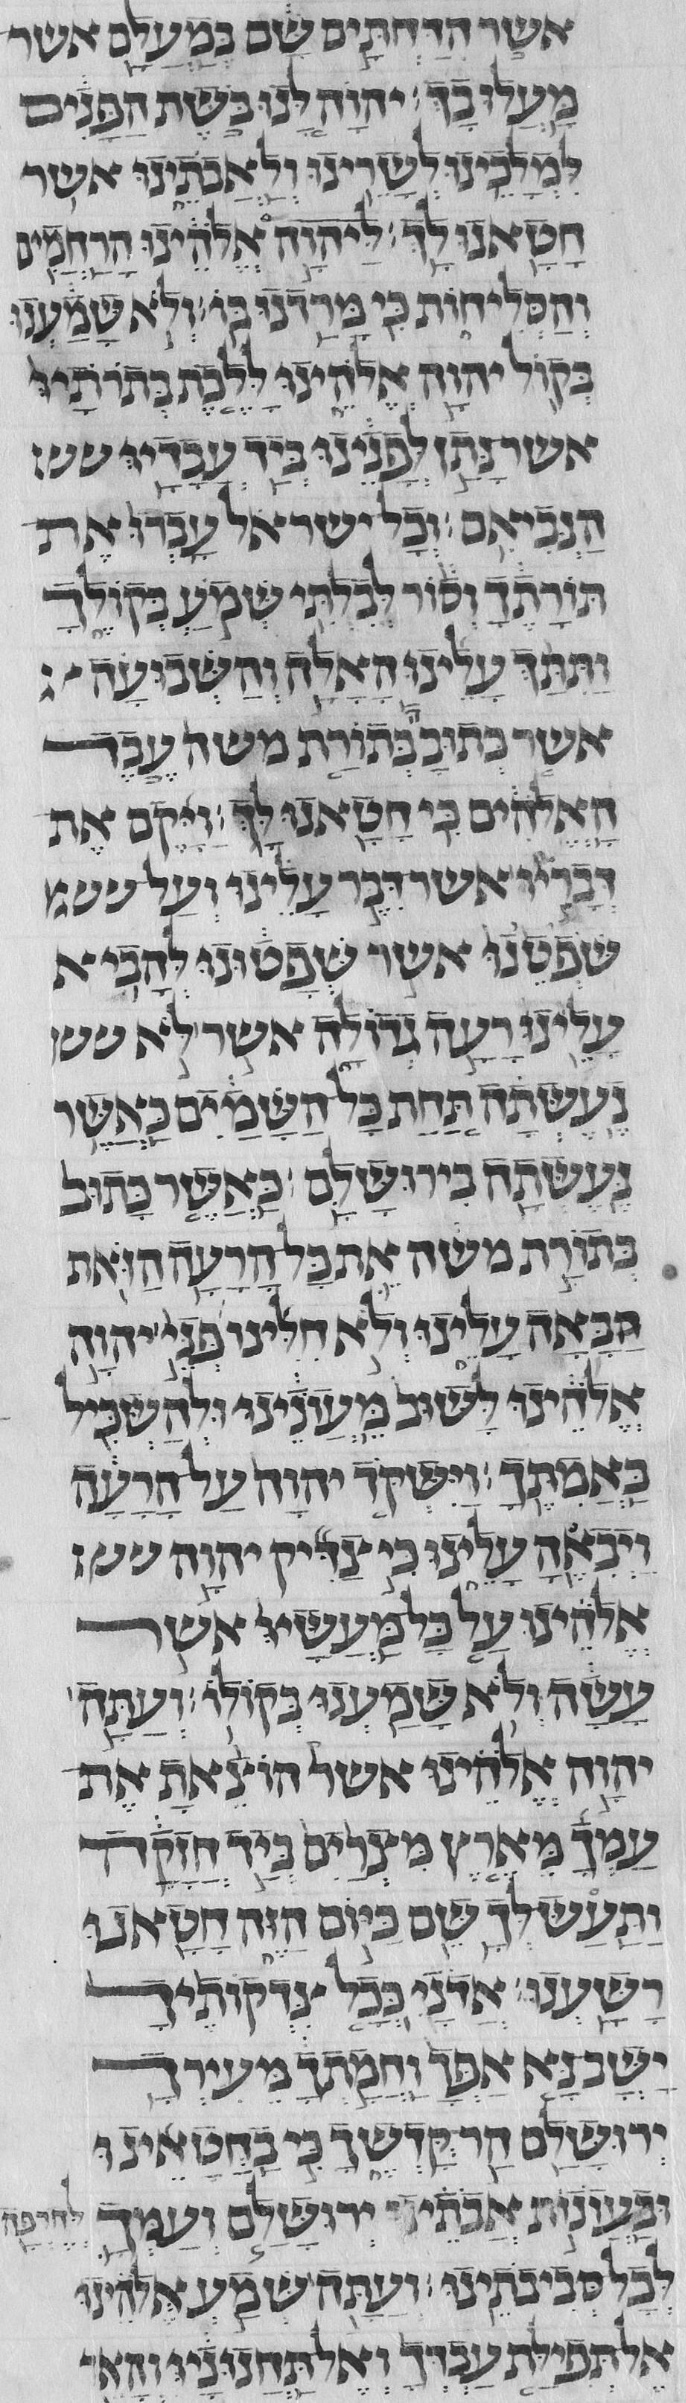 אשר הדחתים שם במעלם אשר
מעלו בך׃ יהוה לנו בשת הפנים
למלכינו לשרינו ולאבתינו אשר
חטאנו לך׃ ליהוה אלהינו הרחמים
והסליחות כי מרדנו בו׃ ולא שמענו
בקול יהוה אלהינו ללכת בתורתיו
אשר נתן לפנינו ביד עבדיו
הנביאם׃ וכל ישראל עברו את
תורתך וסור לבלתי שמע בקולך
ותתך עלינו האלה והשבועה
אשר כתובה בתורת משה עבד
האלהים כי חטאנו לך׃ ויקם את
דבריו אשר דבר עלינו ועל
שפטנו אשר שפטונו להביא
עלינו רעה גדולה אשר לא
נעשתה תחת כל השמים כאשר
נעשתה בירושלם׃ כאשר כתוב
בתורת משה את כל הרעה הזאת
הבאה עלינו ולא חלינו פני יהוה
אלהינו לשוב מעוננו ולהשכיל
באמתך׃ וישקד יהוה על הרעה
ויבאה עלינו כי צדיק יהוה
אלהינו על כל מעשיו אשר
עשה ולא שמענו בקולו׃ ועתה
יהוה אלהינו אשר הוצאת את
עמך מארץ מצרים ביד חזקה
ותעש לך שם כיום הזה חטאנו
רשענו׃ אדני ככל צדקותיך
ישב נא אפך וחמתך מעירך
ירושלם הר קדשך כי בחטאינו
ובעונות אבתינו ירושלם ועמך לחרפה
לכל סביבתינו׃ ועתה שמע אלהינו
אל תפילת עבדך ואל תחנוניו והאר